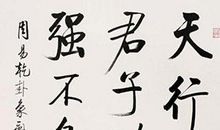 天行
君子
强不
周易乾卦象